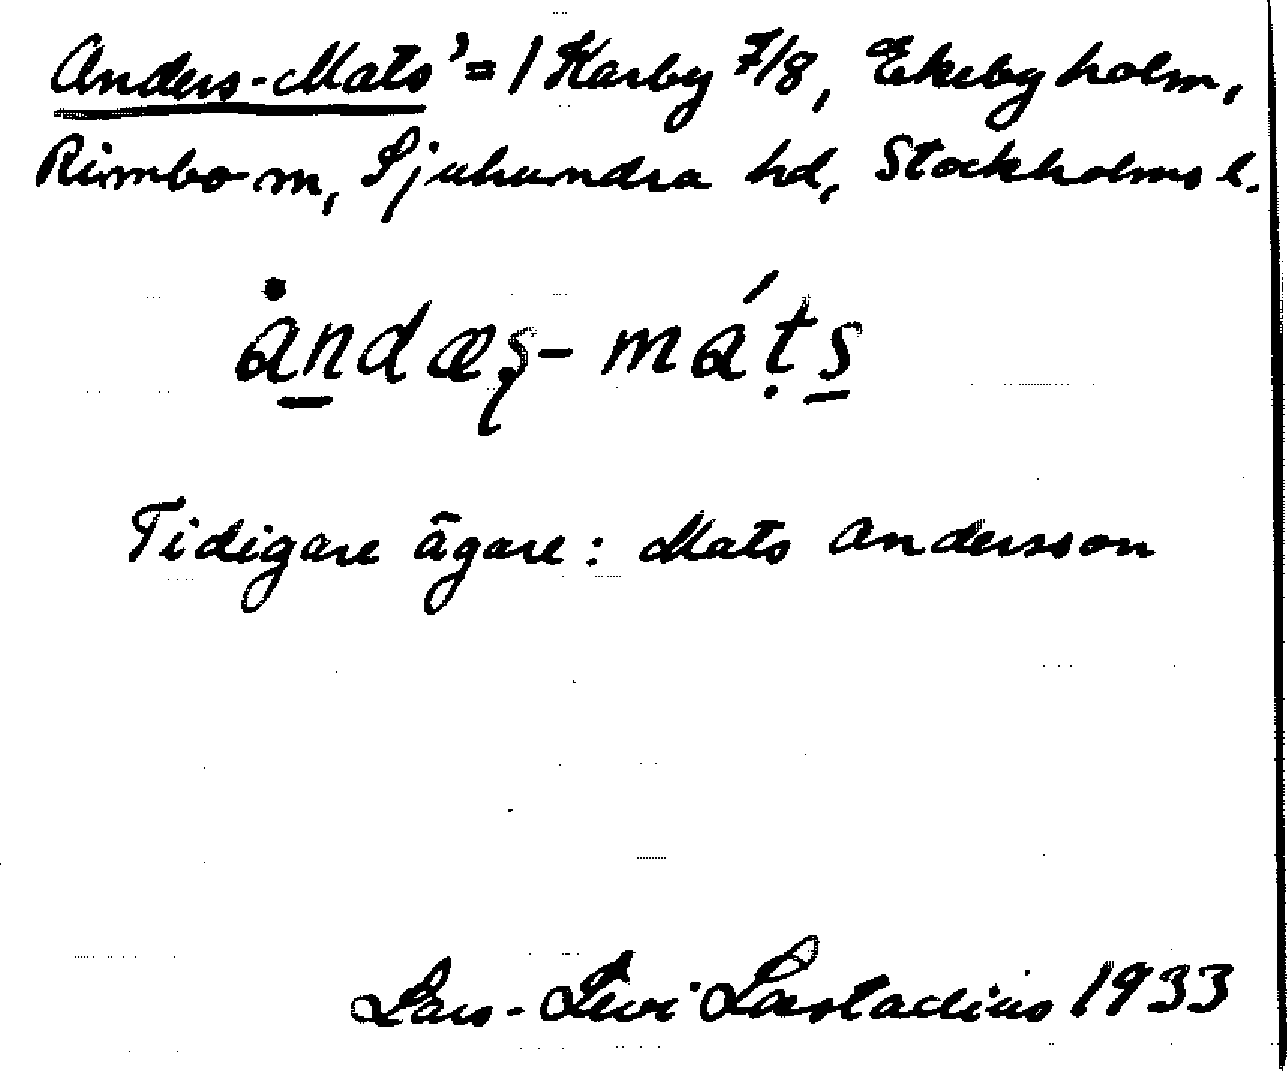 Anders-Mats' = / Karby 7/8, Ekebyholm,
Rimbo sn, Sjuhundra hd, Stockholms l.
åndæş-máṭs
Tidigare ägare: Mats Andersson
Lars-Levi Læstadius 1933